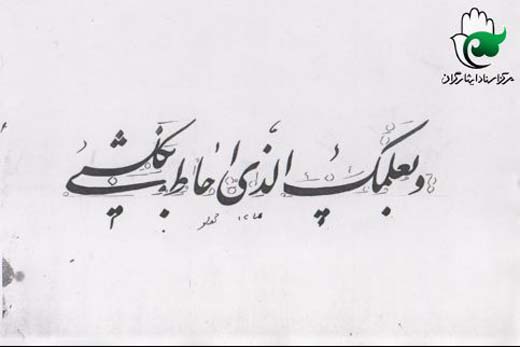 مرکز اسناد ایثارگران
وبعلمک الذی احاط بکل شیء